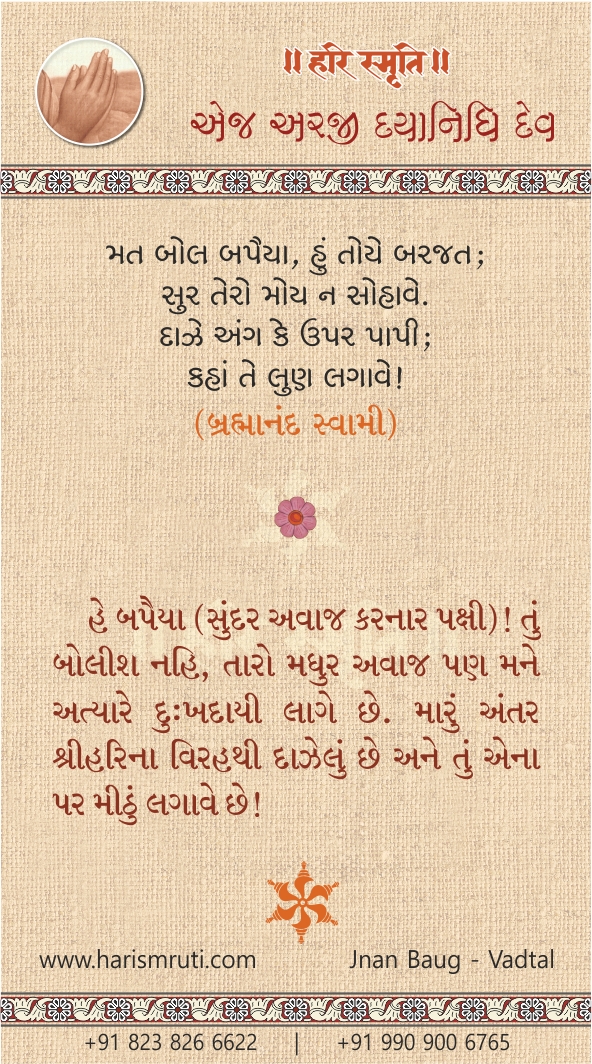 ॥ હરિ સ્મૃતિ ॥
એજ અરજી દયાનિધિ દેવ
મત બોલ બપૈયા, હું તોયે બરજત;
સુર તેરો મોય ન સોહાવે.
દાઝે અંગ કે ઉપર પાપી;
કહાં તે લુણ લગાવે!
(બ્રહ્માનંદ સ્વામી)
હે બપૈયા (સુંદર અવાજ કરનાર પક્ષી)! તું
બોલીશ નહિ, તારો મધુર અવાજ પણ મને
અત્યારે દુઃખદાયી લાગે છે. મારું અંતર
શ્રીહરિના વિરહથી દાઝેલું છે અને તું એના
પર મીઠું લગાવે છે!
www.harismruti.com Jnan Baug - Vadtal
+91 823 826 6622 | +91 990 900 6765